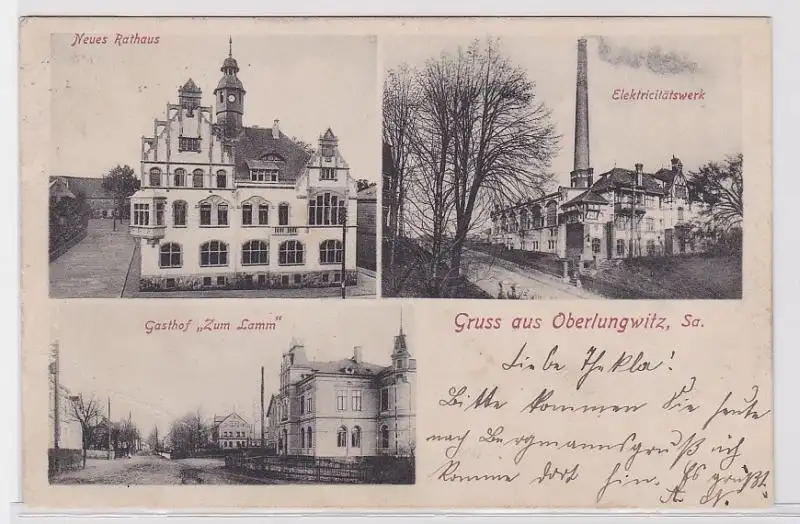 Neues Rathaus
Elektricitätswerk
Gasthof „Zum Lamm"
Gruss aus Oberlungwitz, Sa.
Liebe Thekla!
Bitte kommen Sie heute
nach Bergmannsgruß ich
komme dort hin. Es grüßt